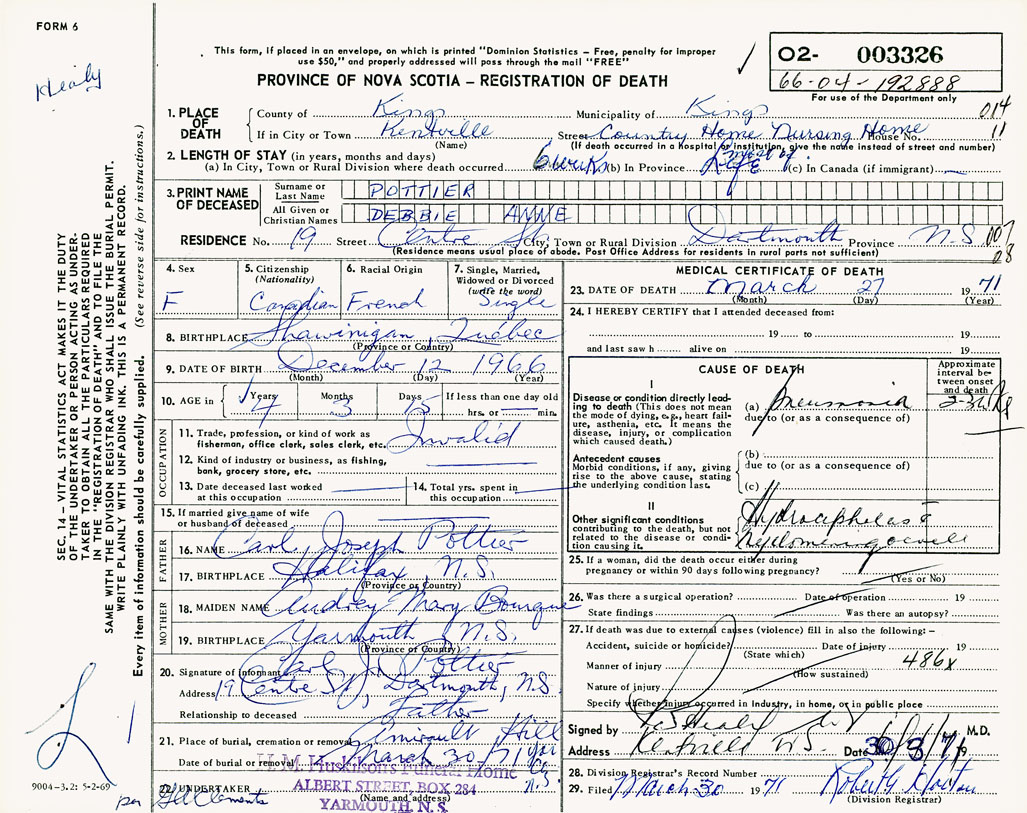 FORM 6
Healy
This form, if placed in an envelope, on which is printed "Dominion Statistics – Free, penalty for improper
use $50," and properly addressed will pass through the mail "FREE"
PROVINCE OF NOVA SCOTIA – REGISTRATION OF DEATH
02- 003326
66-04-192888
For use of the Department only
SEC. 14 – VITAL STATISTICS ACT MAKES IT THE DUTY
OF THE UNDERTAKER OR PERSON ACTING AS UNDER-
TAKER TO OBTAIN ALL THE PARTICULARS REQUIRED
IN THE "REGISTRATION OF DEATH" AND TO FILE THE
SAME WITH THE DIVISION REGISTRAR WHO SHALL ISSUE THE BURIAL PERMIT.
WRITE PLAINLY WITH UNFADING INK. THIS IS A PERMANENT RECORD.
Every item of information should be carefully supplied. (See reverse side for instructions.)
1. PLACE OF DEATH
County of Kings Municipality of Kings 014
If in City or Town Kentville Street Country Home Nursing Home House No. 11
(Name) (If death occurred in a hospital or institution, give the name instead of street and number)
2. LENGTH OF STAY (in years, months and days)
(a) In City, Town or Rural Division where death occurred 6 weeks (b) In Province most of Life (c) In Canada (if immigrant)
3. PRINT NAME OF DECEASED
Surname or Last Name POTTIER
All Given or Christian Names DEBBIE ANNE
RESIDENCE No. 19 Street Centre St. City, Town or Rural Division Dartmouth Province N.S. 007
(Residence means usual place of abode. Post Office Address for residents in rural parts not sufficient) 08
4. Sex F
5. Citizenship (Nationality) Canadian
6. Racial Origin French
7. Single, Married, Widowed or Divorced (write the word) Single
8. BIRTHPLACE Shawinigan, Québec
(Province or Country)
9. DATE OF BIRTH December 12 1966
(Month) (Day) (Year)
10. AGE in Years 4 Months 3 Days 15 If less than one day old
hrs. or min.
OCCUPATION
11. Trade, profession, or kind of work as
fisherman, office clerk, sales clerk, etc. Invalid
12. Kind of industry or business, as fishing,
bank, grocery store, etc.
13. Date deceased last worked
at this occupation
14. Total yrs. spent in
this occupation
15. If married give name of wife
or husband of deceased
FATHER
16. NAME Carl Joseph Pottier
17. BIRTHPLACE Halifax, N.S.
(Province or Country)
MOTHER
18. MAIDEN NAME Audrey Mary Bourque
19. BIRTHPLACE Yarmouth N.S.
(Province or Country)
20. Signature of informant Carl J. Pottier
Address 19 Centre St, Dartmouth, N.S.
Relationship to deceased Father
21. Place of burial, cremation or removal Amirault Hill
Date of burial or removal March 30/71
22. UNDERTAKER
Huskilson's Funeral Home
ALBERT STREET, BOX 284
YARMOUTH, N. S.
(Name and address)
9004-3.2: 5-2-69
per
MEDICAL CERTIFICATE OF DEATH
23. DATE OF DEATH March 27 1971
(Month) (Day) (Year)
24. I HEREBY CERTIFY that I attended deceased from:
19 to 19
and last saw h alive on 19
CAUSE OF DEATH
Approximate interval between onset and death
I
Disease or condition directly leading to death (This does not mean the mode of dying, e.g., heart failure, asthenia, etc. It means the disease, injury, or complication which caused death.)
(a) Pneumonia
due to (or as a consequence of)
Antecedent causes
Morbid conditions, if any, giving rise to the above cause, stating the underlying condition last.
(b)
due to (or as a consequence of)
(c)
II
Other significant conditions
contributing to the death, but not related to the disease or condition causing it.
25. If a woman, did the death occur either during
pregnancy or within 90 days following pregnancy?
(Yes or No)
26. Was there a surgical operation? Date of operation 19
State findings Was there an autopsy?
27. If death was due to external causes (violence) fill in also the following –
Accident, suicide or homicide? Date of injury 19
(State which)
Manner of injury 486x
(How sustained)
Nature of injury
Specify whether injury occurred in industry, in home, or in public place
Signed by M.D.
Address Kentville N.S. Date 30/3/71 19
28. Division Registrar's Record Number
29. Filed March 30 1971
(Division Registrar)